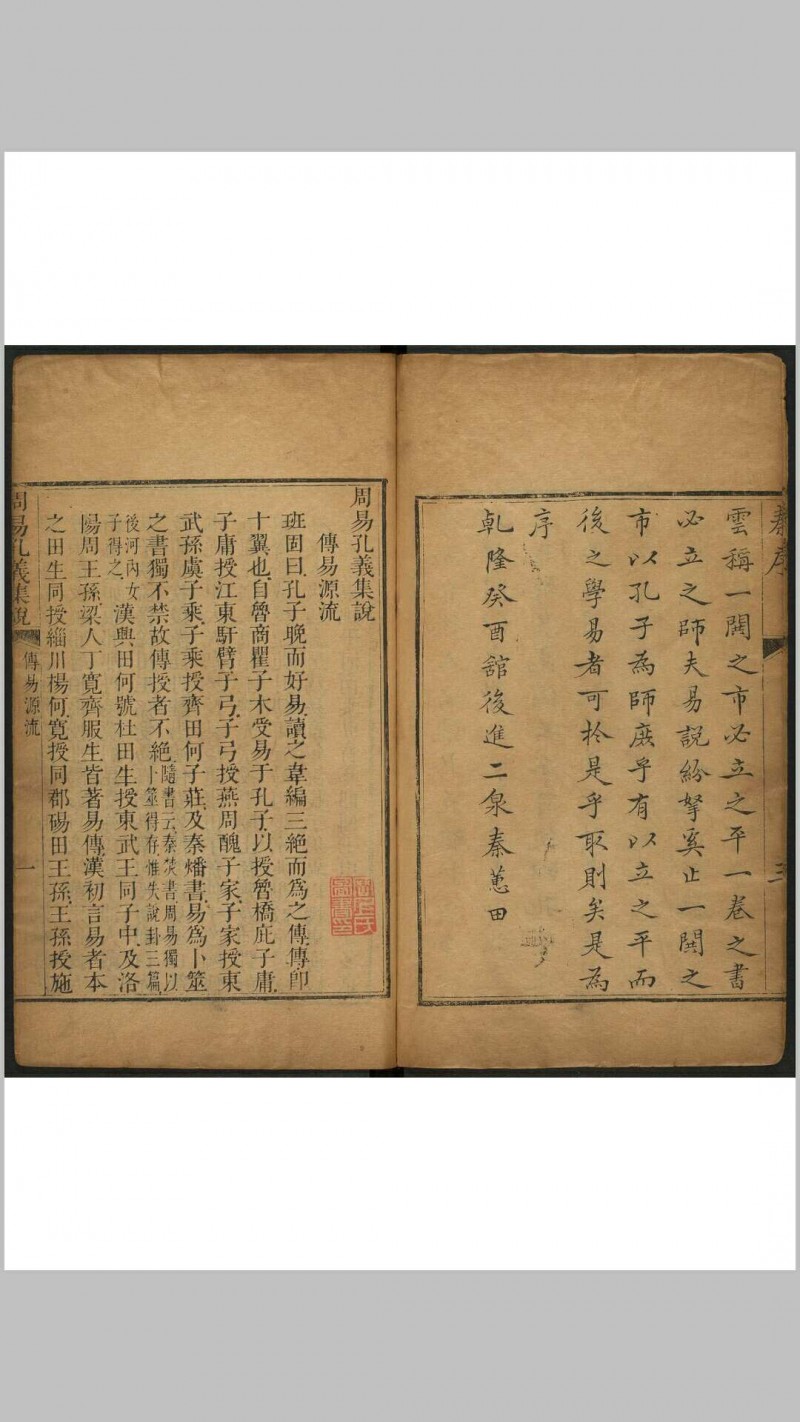 秦序
三
雲稱一閧之市必立之平一卷之書
必立之師夫易說紛拏奚止一閧之
市以孔子為師庶乎有以立之平而
後之學易者可於是乎取則矣是為
序
乾隆癸酉舘後進二泉秦蕙田
周易孔義集說
傳易源流
班固曰孔子晚而好易讀之韋編三絶而爲之傳傳卽
十翼也自魯商瞿子木受易于孔子以授魯橋庇子庸
子庸授江東馯臂子弓子弓授燕周醜子家子家授東
武孫虞子乘子乘授齊田何子莊及秦燔書易爲卜筮
之書獨不禁故傳授者不絶隨書云秦焚書周易獨以
卜筮得存惟失說卦三篇
後河內女
子得之漢興田何號杜田生授東武王同子中及洛
陽周王孫梁人丁寬齊服生皆著易傳漢初言易者本
之田生同授緇川楊何寬授同郡碭田王孫王孫授施
周易孔義集說
傳易源流
一